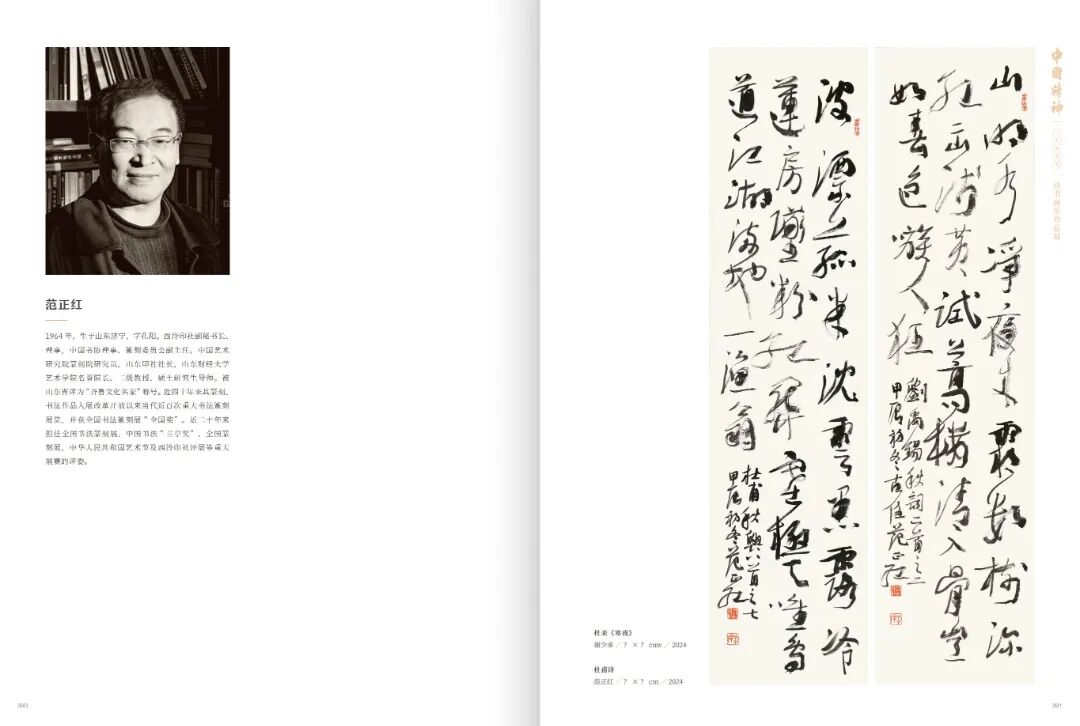 范正红
1964 年，生于山东济宁，字孔阳。西泠印社副秘书长、
理事，中国书协理事、篆刻委员会副主任，中国艺术
研究院篆刻院研究员，山东印社社长，山东财经大学
艺术学院名誉院长、二级教授、硕士研究生导师。被
山东省评为“齐鲁文化名家”称号。近四十年来其篆刻、
书法作品入展改革开放以来当代近百次重大书法篆刻
展览，并获全国书法篆刻展“全国奖”。近二十年来
担任全国书法篆刻展、中国书法“兰亭奖”、全国篆
刻展、中华人民共和国艺术节及西泠印社评展等重大
展赛的评委。
390
中國精神
诗书画乐作品展
山明水淨夜来霜數樹深
紅出淺黄試上高樓清入骨豈
如春色嗾人狂
劉禹錫秋詞二首之二
甲辰初冬古任范正紅
波漂菰米沈雲黑露冷
蓮房墜粉紅關塞極天唯鳥
道江湖滿地一漁翁
杜甫秋興八首之七
甲辰初冬范正紅
杜耒《寒夜》
谢少承 / ? × ? cm / 2024
杜甫诗
范正红 / ? × ? cm / 2024
391